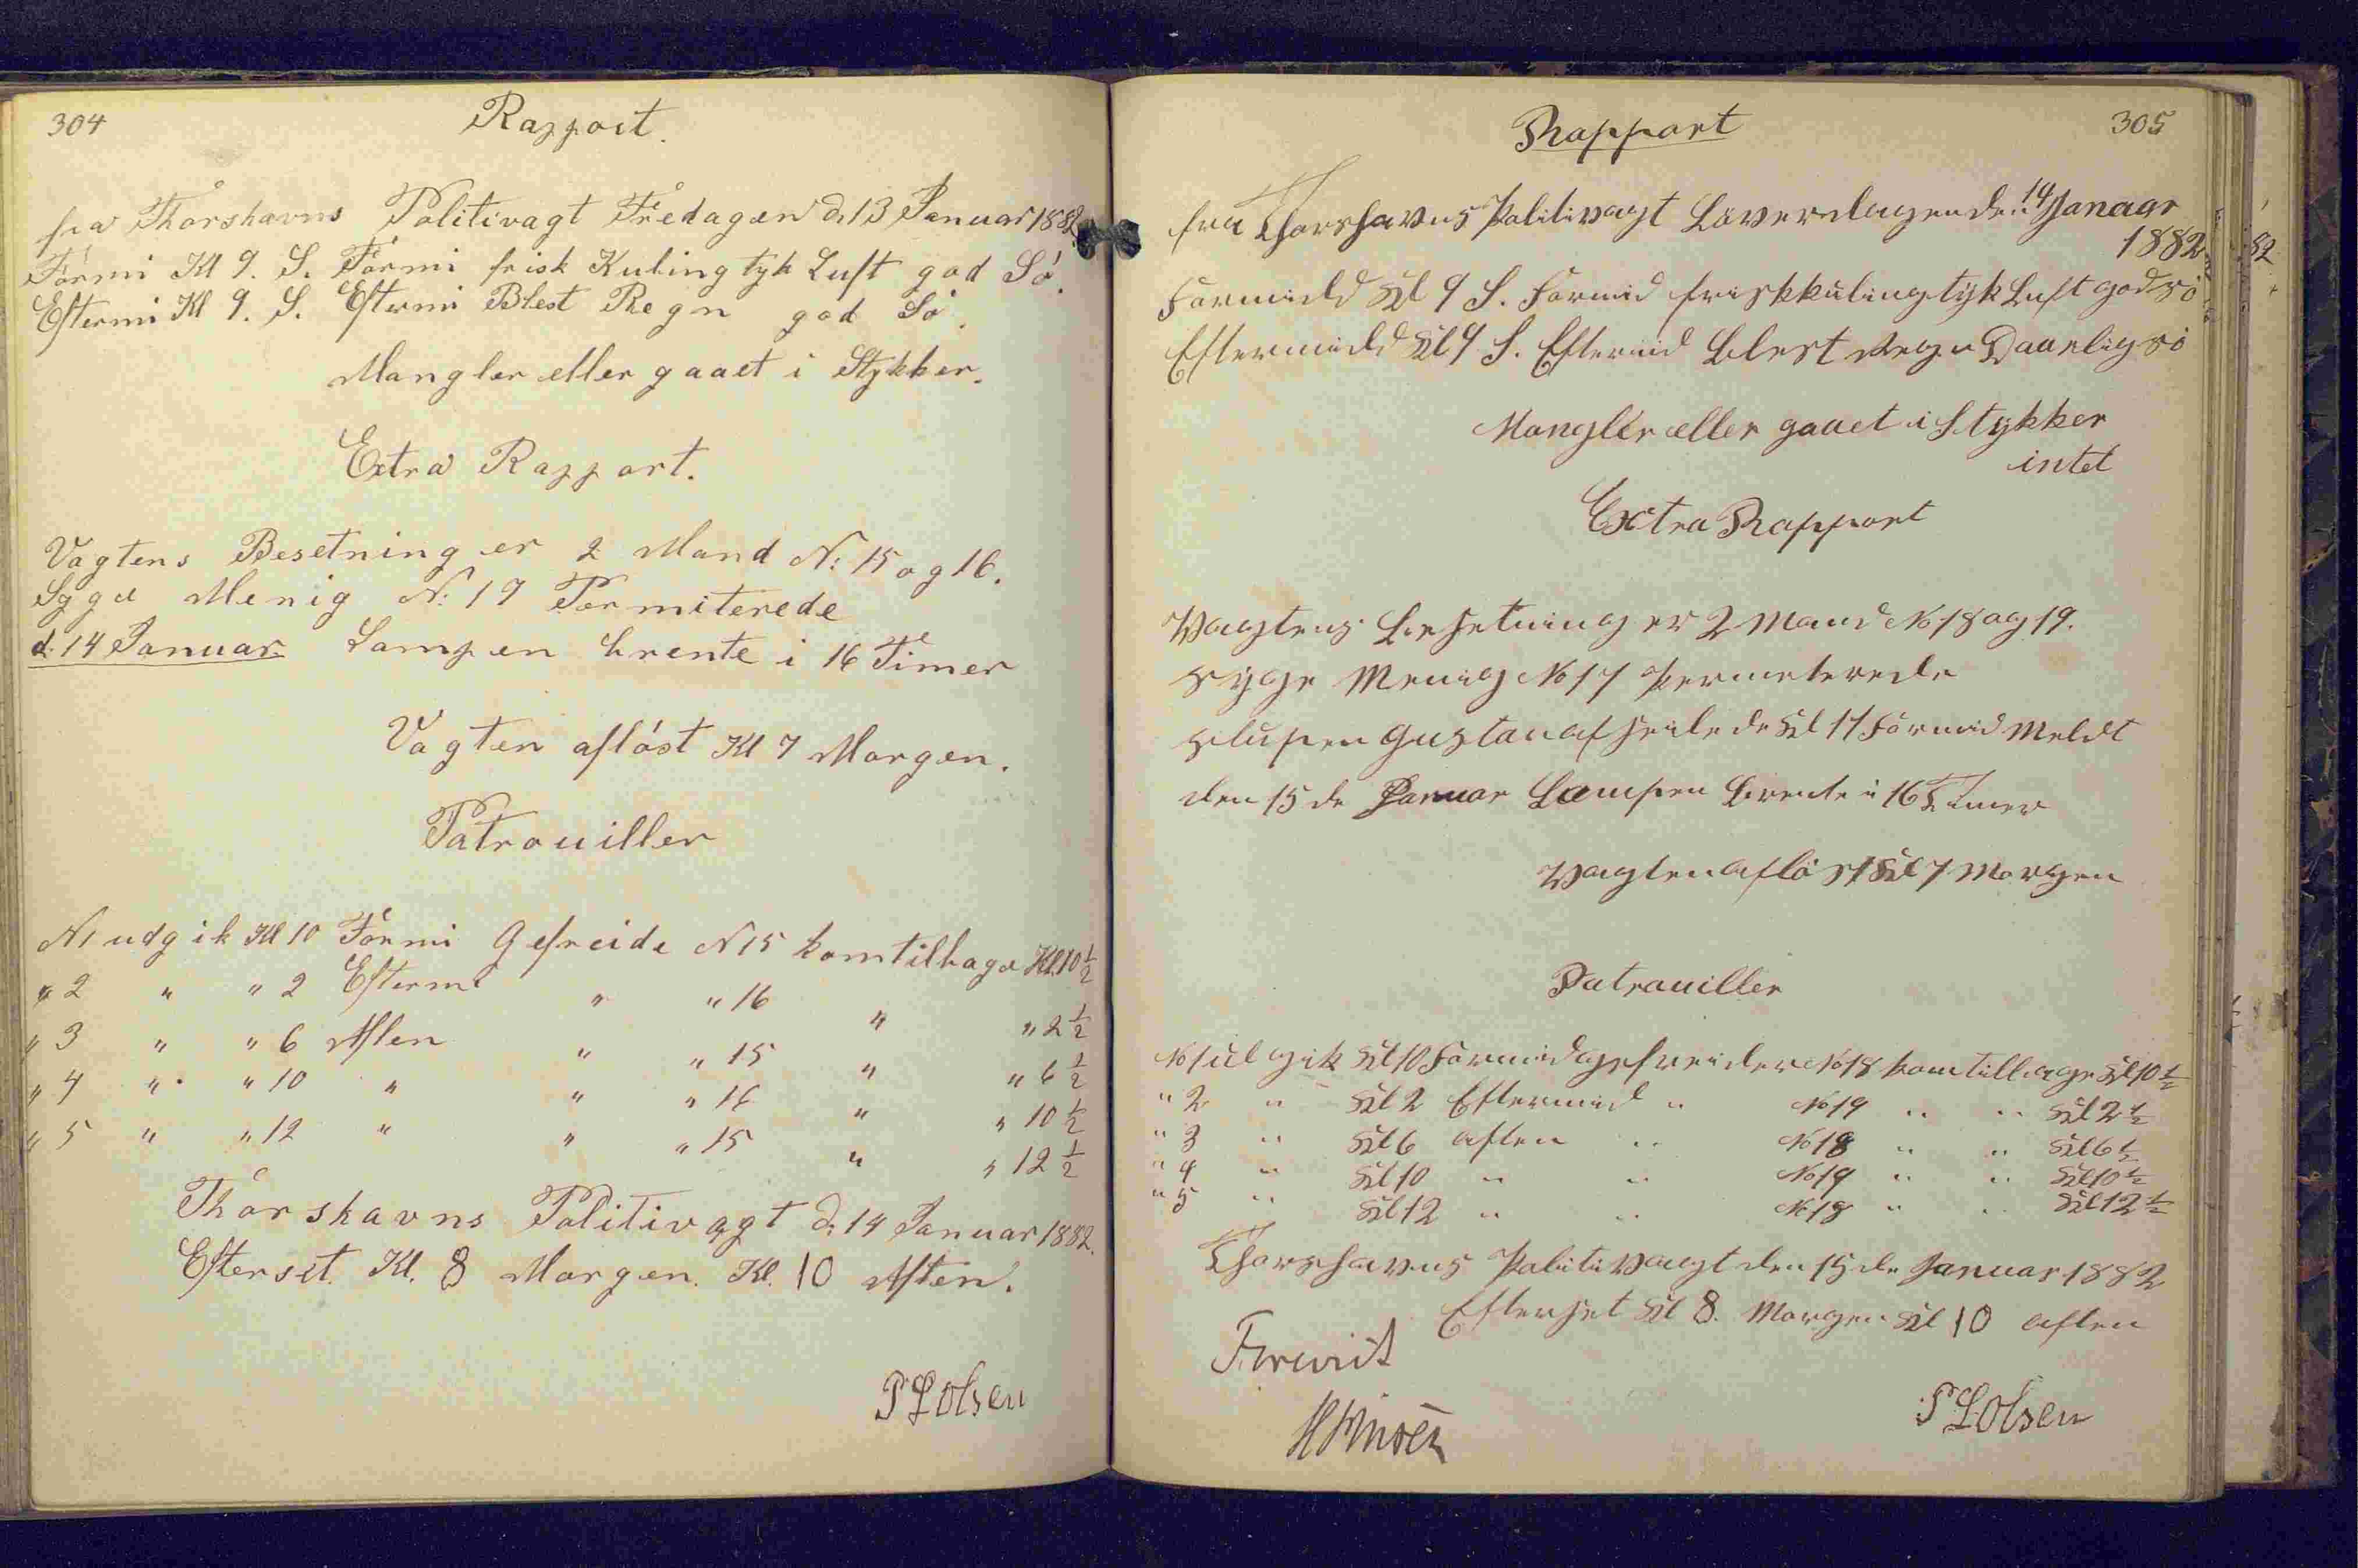 304
Rapport.
fra Thorshavns Politivagt Fredagen d. 13 Januar 1882.
Formi Kl 9. S. Formi frisk Kuling tyk Luft god Sö.
Eftermi Kl 9. S. Eftermi Blest Regn god Sö.
Mangler eller gaaet i Stykker.
Extra Rapport.
Vagtens Besetning er 2 Mand N: 15 og 16.
Syge Menig N: 19 Permiterede
d. 14 Januar Lampen brente i 16 Timer
Vagten aflöst Kl 7 Morgen.
Patrouiller
N1 udgik Kl 10 Formi Gefreide N 15 kom tilbage Kl. 10 1/2
" 2 " " 2 Eftermi " " 16 " " 2 1/2
" 3 " " 6 Aften " " 15 " " 6 1/2
" 4 " " 10 " " " 16 " " 10 1/2
" 5 " " 12 " " " 15 " " 12 1/2
Thorshavns Politivagt d. 14 Januar 1882.
Efterset. Kl. 8 Morgen. Kl. 10 Aften.
P L Olsen
305
Rapport
fra Thorshavns Politivagt Löverdagen den 14 Janaar
1882
Formidd Kl 9 S. Formid frisk kuling tyk Luft god sö
Eftermidd Kl 9 S. Eftermid blest Regn Daarlig sö
Mangler eller gaaet i Stykker
intet
Extra Rapport
Vagtens besetning er 2 Mand No 18 og 19.
Syge Menig No 17 Permeterede
Slupen Gustav afseilede Kl 11 Formid Meldt
den 15 de Januar Lampen brente i 16 Timer
Vagten aflöst Kl 7 Morgen
Patrouiller
No 1 udgik Kl 10 Formid gefreider No 18 kom tilbage Kl 10 1/2
" 2 " Kl 2 Eftermid " No 19 " " Kl 2 1/2
" 3 " Kl 6 aften " No 18 " " Kl 6 1/2
" 4 " Kl 10 " " No 19 " " Kl 10 1/2
" 5 " Kl 12 " " No 18 " " Kl 12 1/2
Thorshavns Politivagt den 15 de Januar 1882
Efterset Kl 8. Morgen Kl 10 aften
Forevist
P L Olsen
82